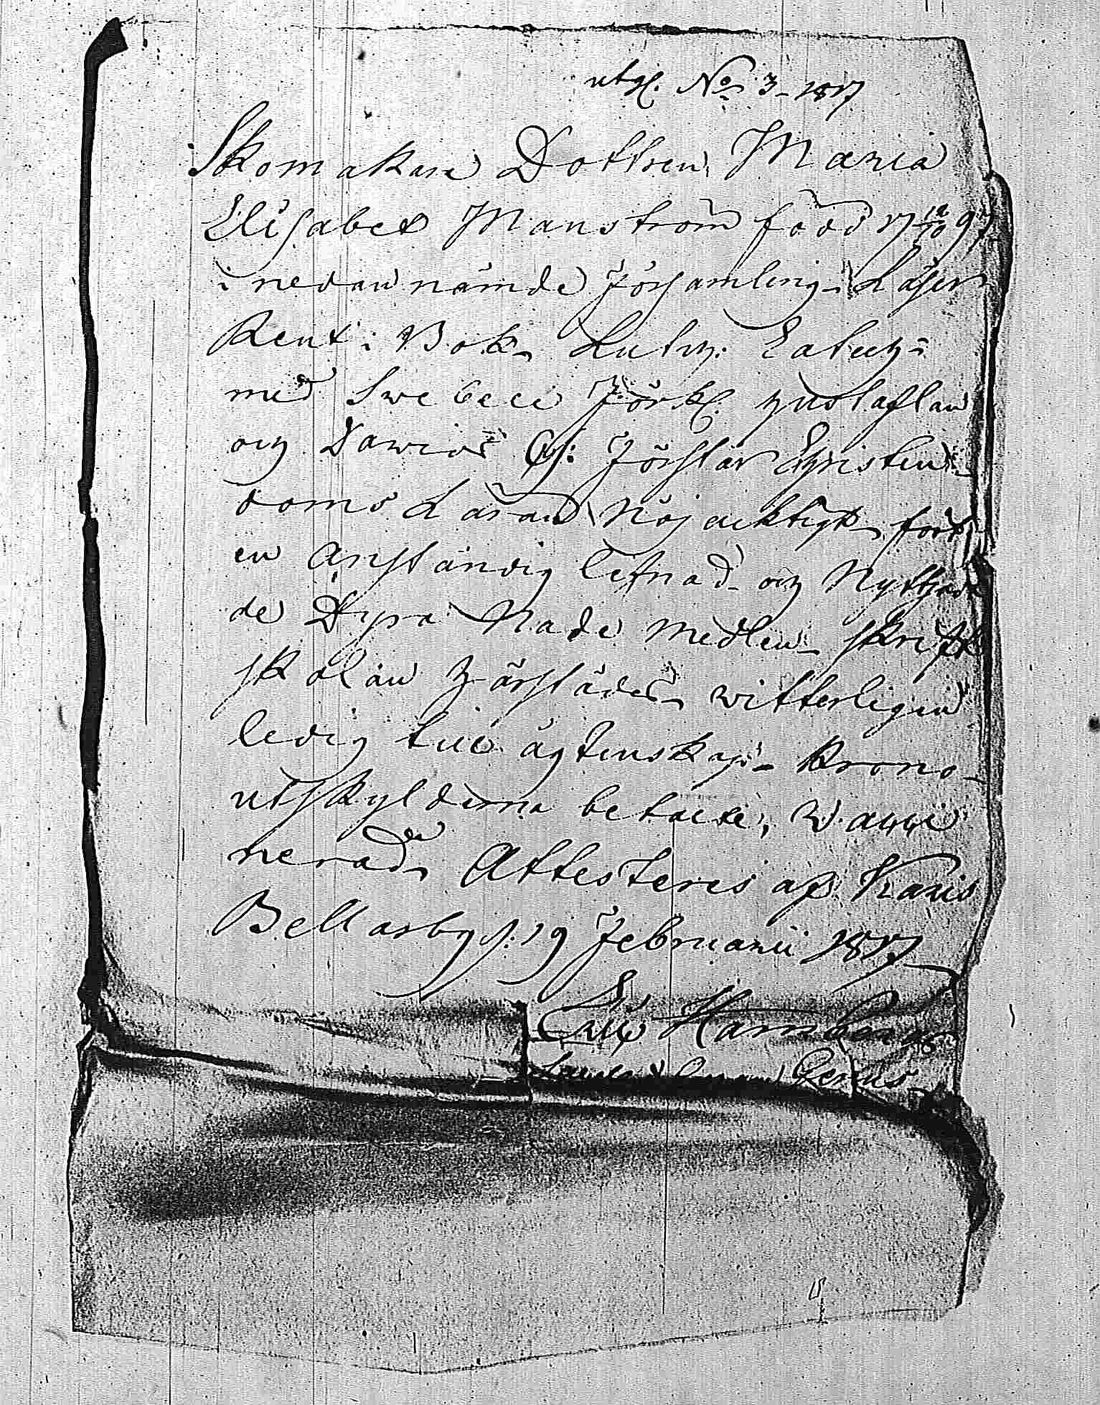 utgl. No 3 - 1817
Skomakare Dottren Maria
Elisabet Manström född 17 12/10 97
i nedannämde församling, Läser
Rent i Bok, Luth: Catech:
med Swebelii Förkl. Hustaflan
och Dawids Ps: Förstår Christen-
doms Läran Nöjacktigt, fört
en anständig lefnad och Nyttjadt
de Dyra Nåde medlen, skrift
skolan härstädes, witterligen
ledig till ägtenskap. Krono-
utskylderna betalte, Wacci-
nerad, Attesteres af Karis
Bellarby d: 19 Februarii 1817